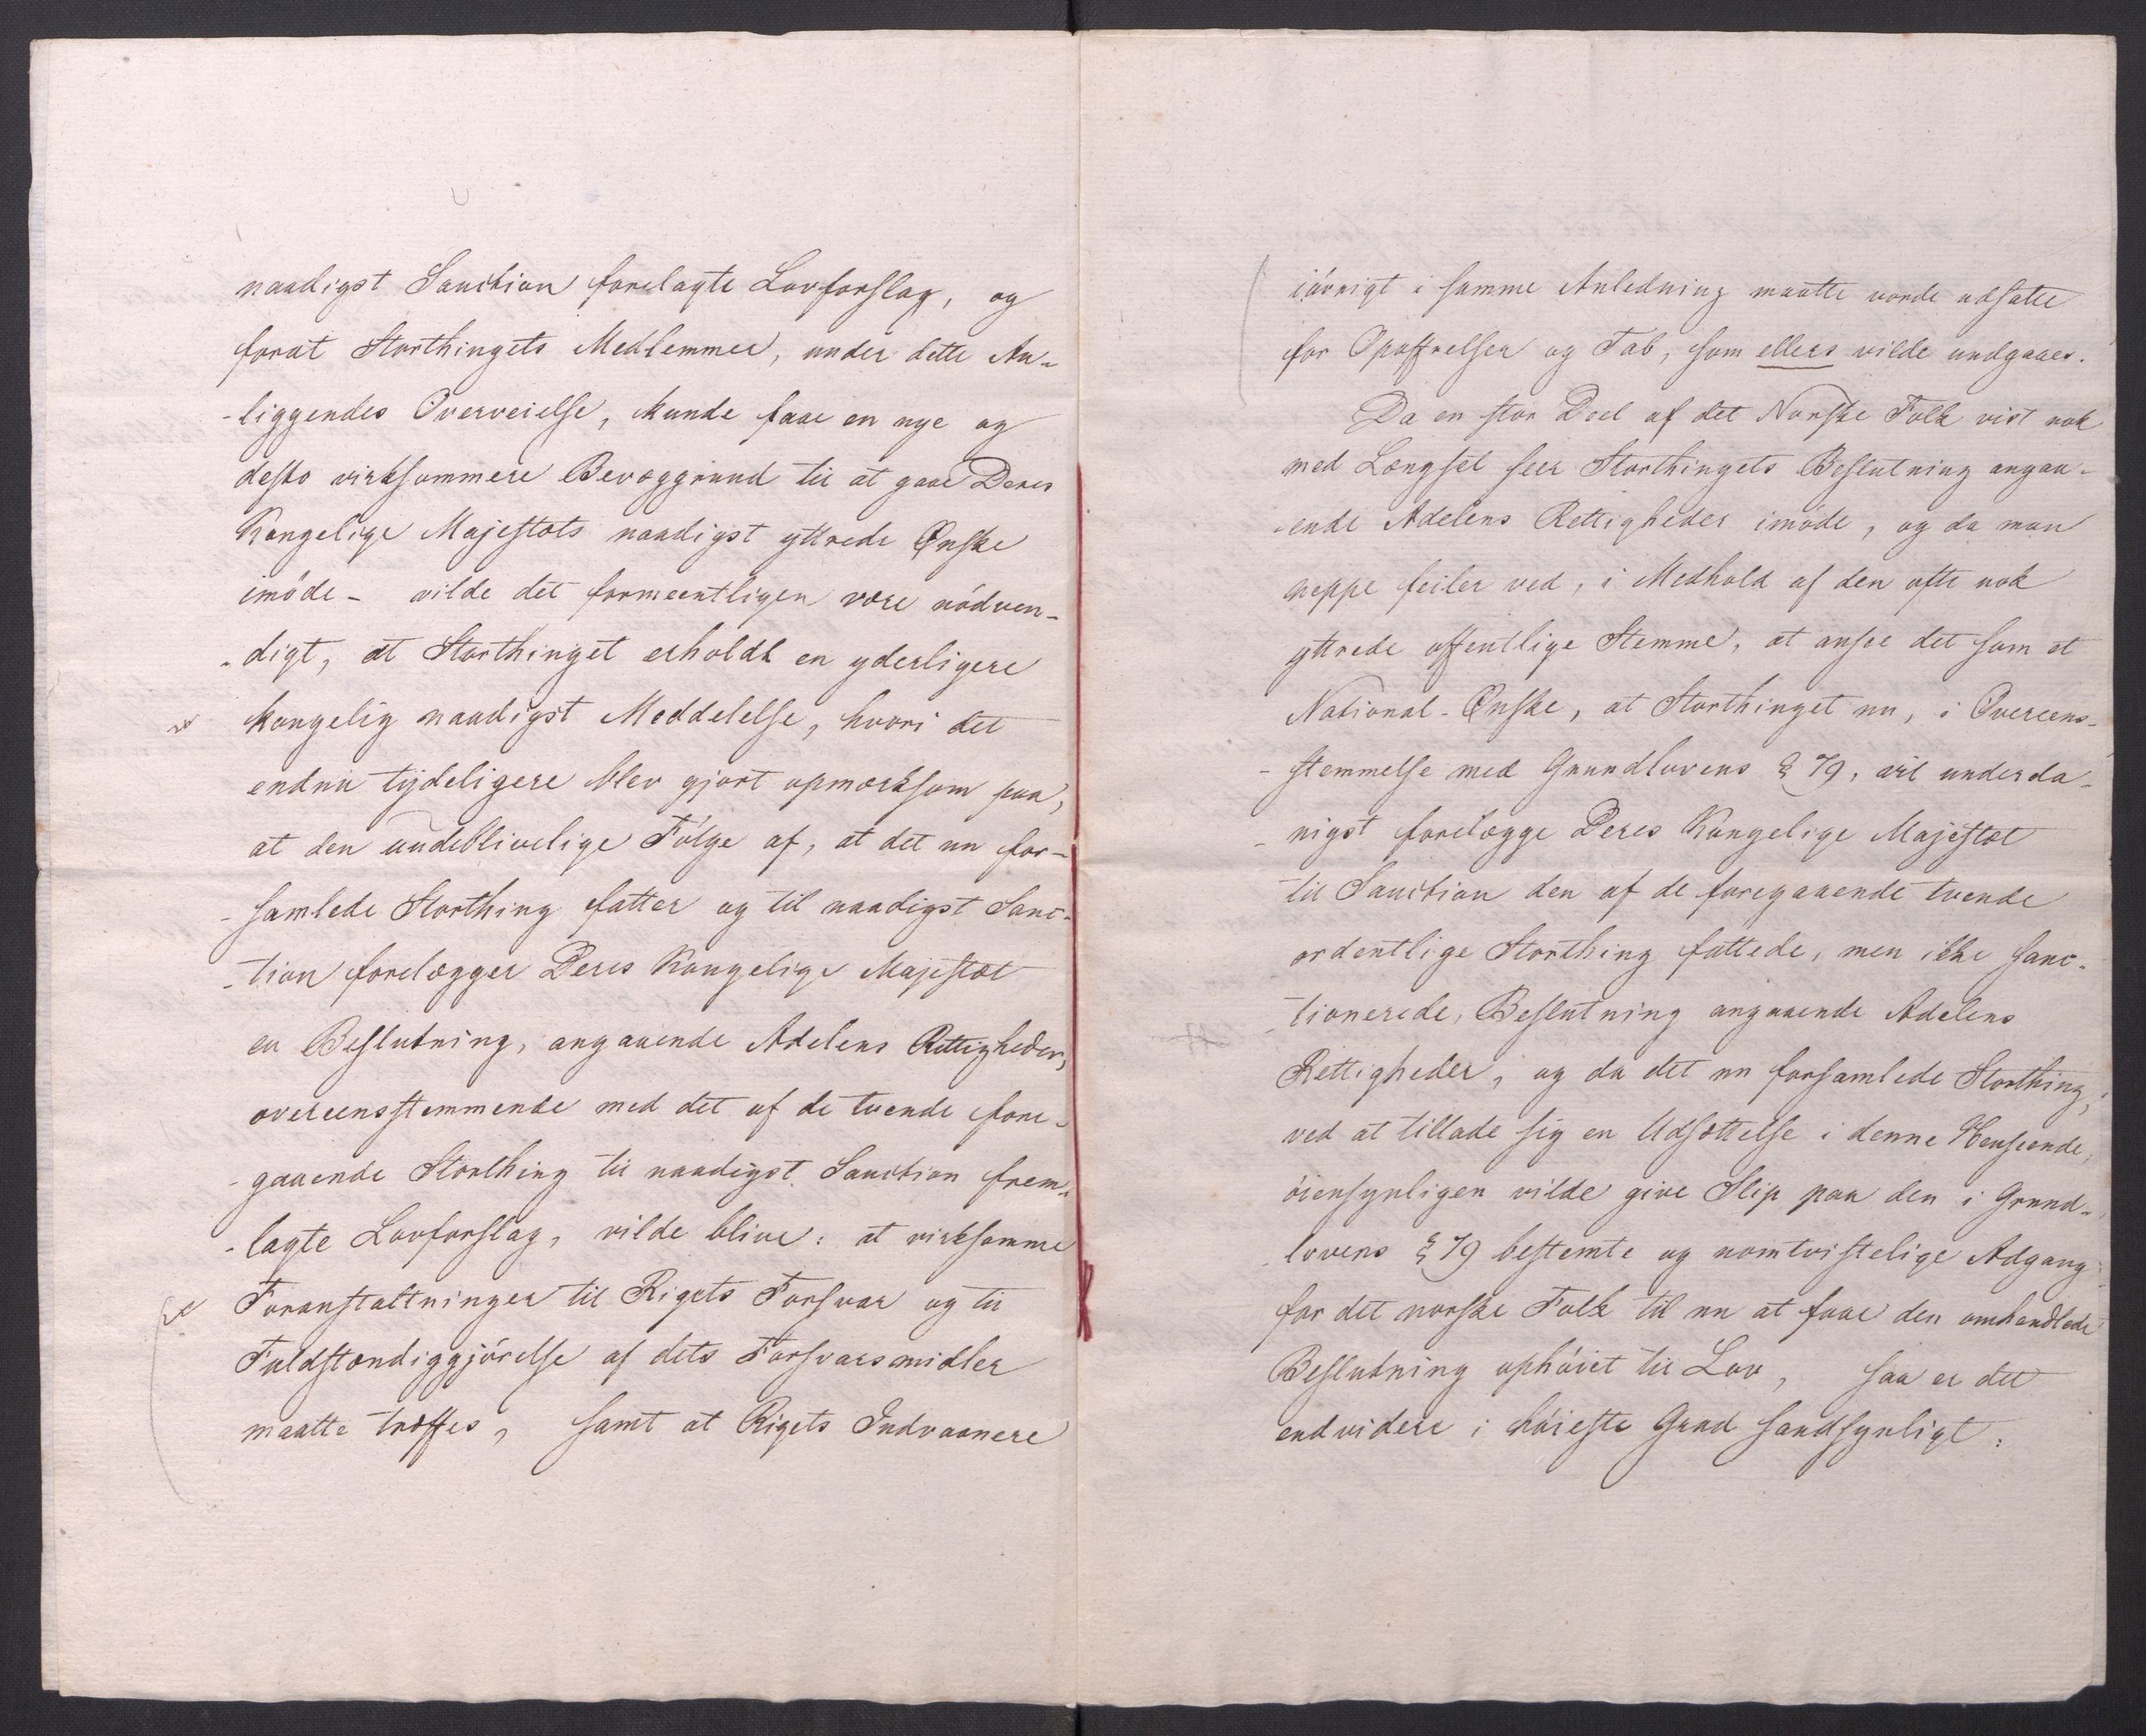 naadigst Sanction forelagte Lovforslag, og
forat Storthingets Medlemmer, under dette An-
-liggendes Overveielse, kunde faae en nye og
desto virksommere Bevæggrund til at gaae Deres
Kongelige Majestæts naadigst yttrede Ønske
imøde - vilde det formeentligen være nødven-
-digt, at Storthinget erholdt en yderligere
kongelig naadigst Meddelelse, hvori det
endnu tydeligere blev gjort opmærksom paa,
at den uudeblivelige Følge af, at det nu for-
-samlede Storthing fatter og til naadigst Sanc-
-tion forelægger Deres Kongelige Majestæt
en Beslutning, angaaende Adelens Rettigheder,
overeensstemmende med det af de tvende fore-
-gaaende Storthing til naadigst Sanction frem-
-lagte Lovforslag, vilde blive: at virksomme
Foranstaltninger til Rigets Forsvar og til
Fuldstændiggjørelse af dets Forsvarsmidler
maatte træffes, samt at Rigets Indvaanere
iøvrigt i samme Anledning maatte vorde udsatte
for Opoffrelser og Tab, som ellers vilde undgaaes.
Da en stor Deel af det Norske Folk vist nok
med Længsel seer Storthingets Beslutning angaa-
-ende Adelens Rettigheder imøde, og da man
neppe feiler ved, i Medhold af den ofte nok
yttrede offentlige Stemme, at ansee det som et
National-Ønske, at Storthinget nu, i Overeens-
-stemmelse med Grundlovens § 79, vil underda-
-nigst forelægge Deres Kongelige Majestæt
til Sanction den af de foregaaende tvende
ordentlige Storthing fattede, men ikke sanc-
-tionerede, Beslutning angaaende Adelens
Rettigheder, og da det nu forsamlede Storthing,
ved at tillade sig en Udsættelse i denne Henseende,
øiensynligen vilde give Slip paa den i Grund-
-lovens § 79 bestemte og uomtvistelige Adgang
for det norske Folk til nu at faae den omhandlede
Beslutning ophøiet til Lov, saa er det
endvidere i høieste Grad sandsynligt: